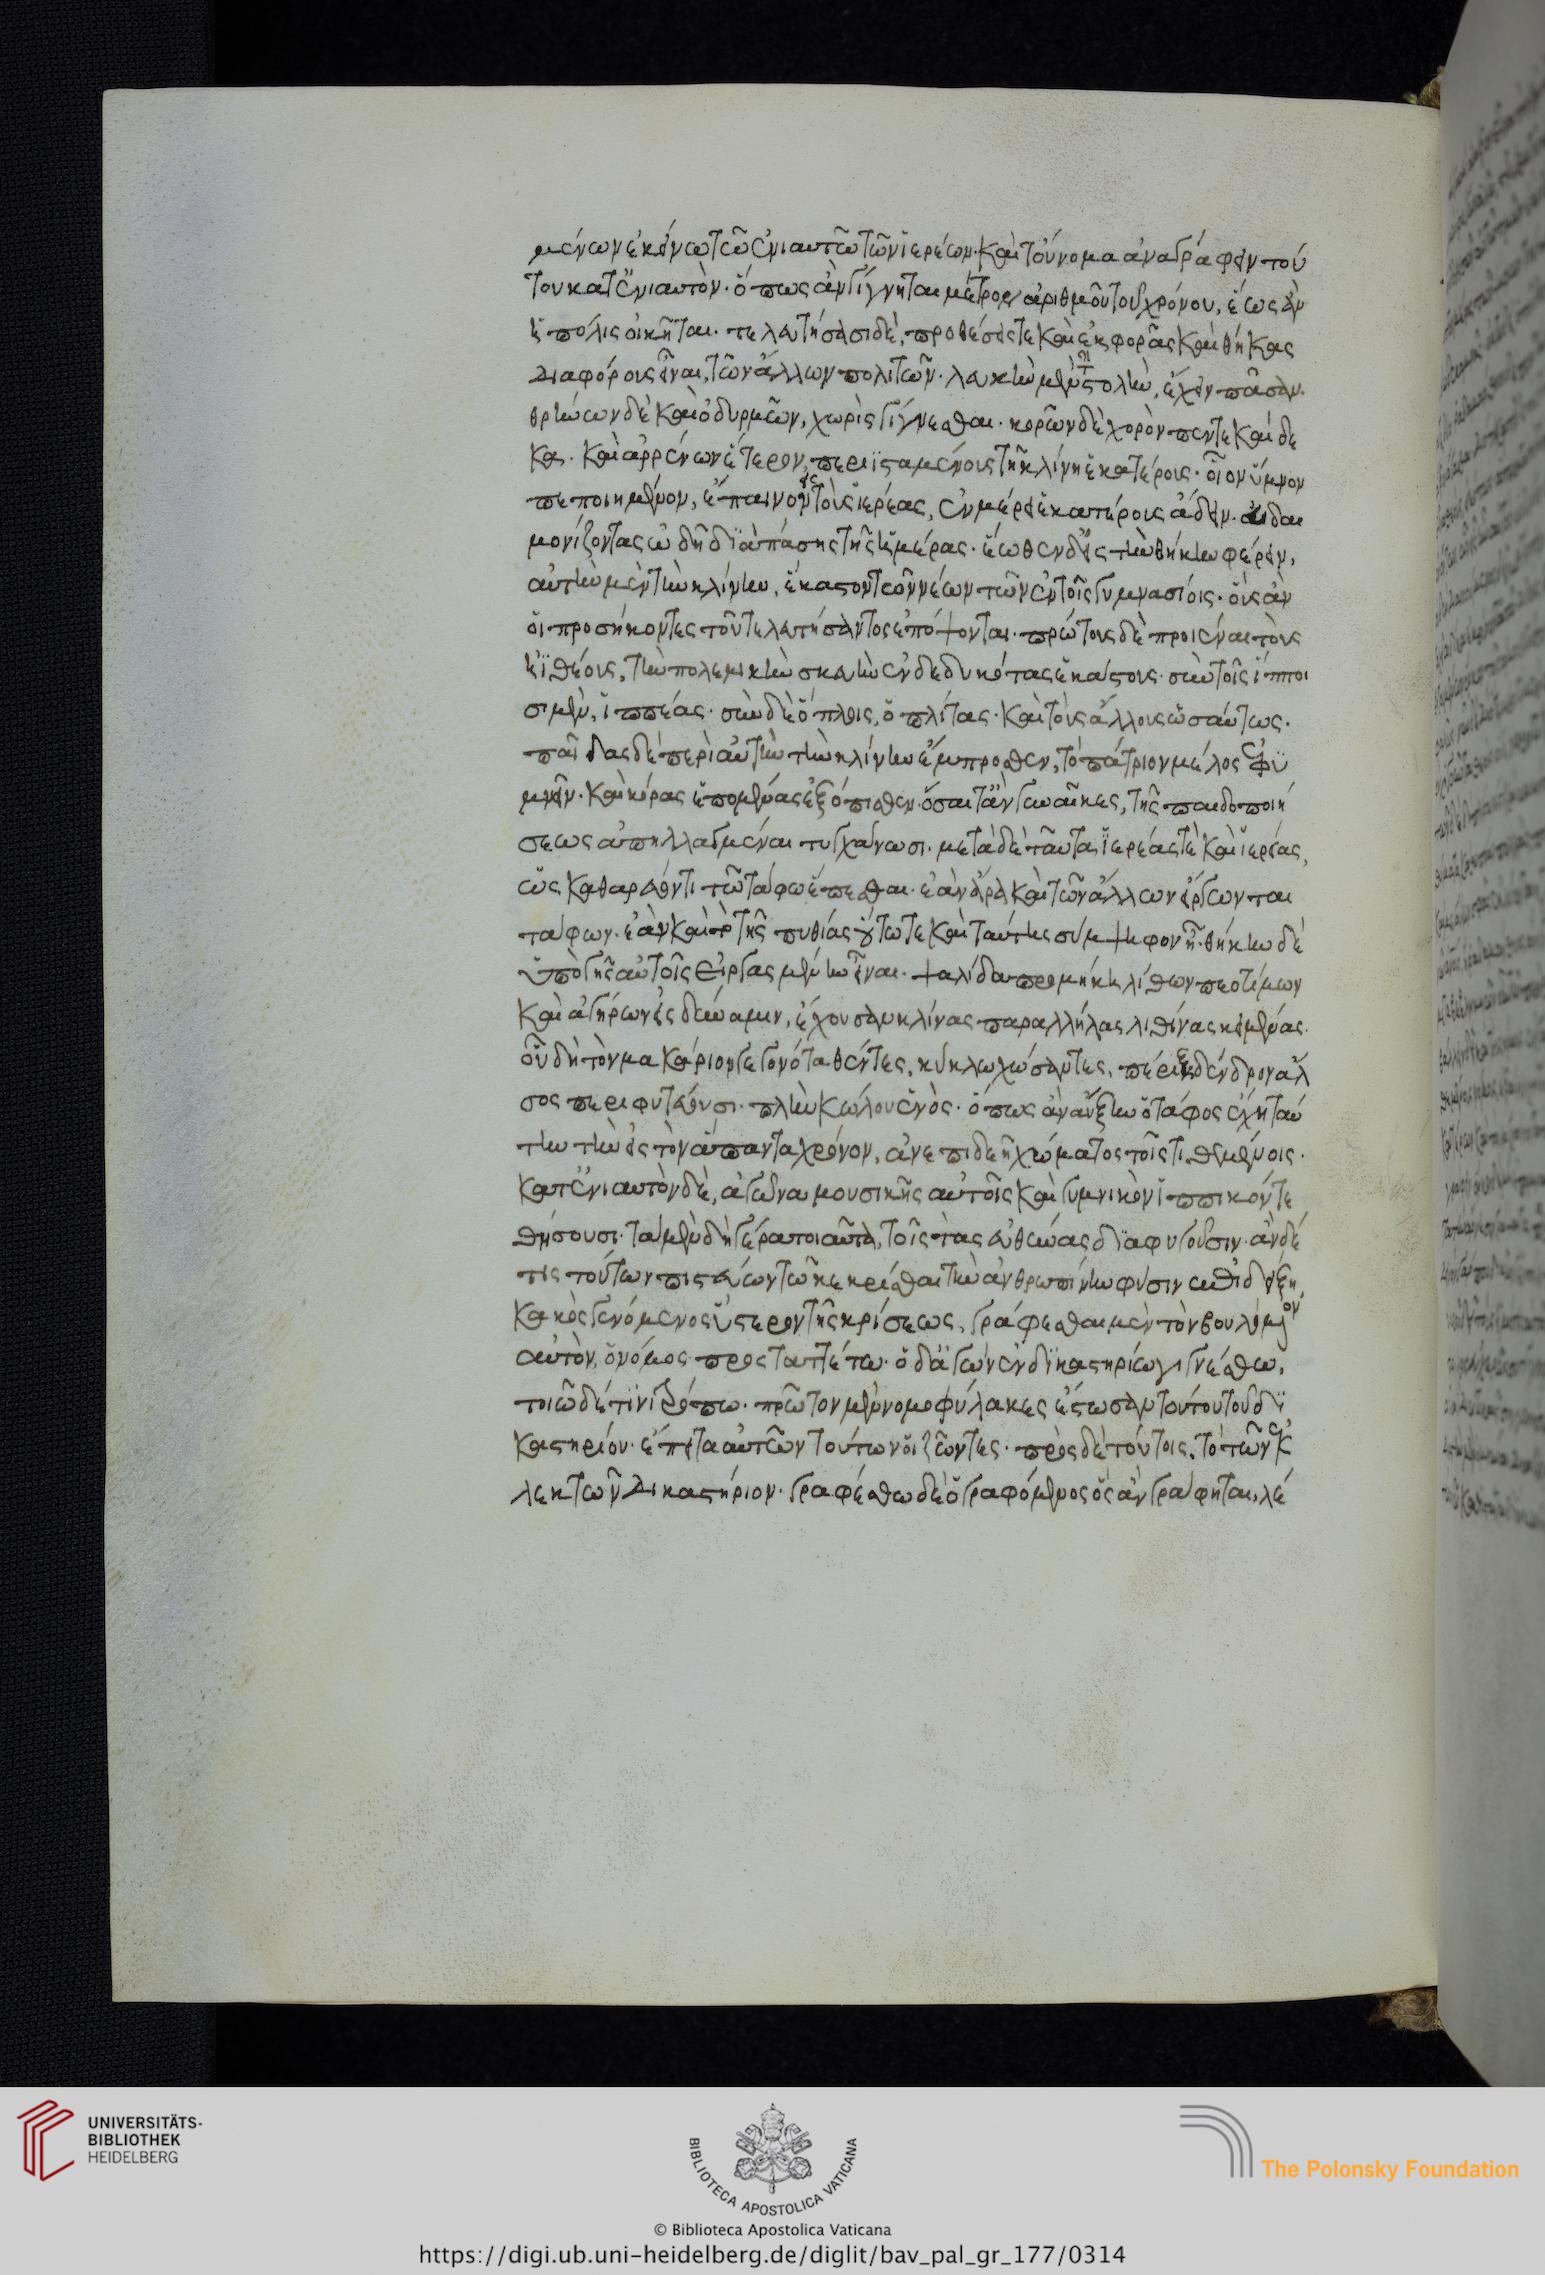 μένων ἐκείνω τῶ ἐνιαυτῶ τῶν ἱερέων. καὶ τοὔνομα ἀναγράφειν τού
του κατ' ἐνιαυτὸν. ὅπως ἂν γίγνηται μέτρον ἀριθμοῦ τοῦ χρόνου, ἕως ἂν
ἡ πόλις οἰκῆται. τελευτήσασι δὲ, προθέσεις τε καὶ ἐκφορὰς καὶ θήκας
διαφόρους εἶναι, τῶν ἄλλων πολιτῶν. λευκὴν μὲν στολὴν, ἔχειν πᾶσαν.
θρήνων δὲ καὶ ὀδυρμῶν, χωρὶς γίγνεσθαι. κορῶν δὲ χορὸν πεντεκαίδε
κα. καὶ ἀρρένων ἕτερον, περιϊσταμένους τῆ κλίνη ἑκατέρους. οἷον ὕμνον
πεποιημένον, ἔπαινον τοὺς ἱερέας, ἐν μέρει ἑκατέρους ἄδειν. εὐδαι
μονίζοντας ὠδῆ διὰ πάσης τῆς ἡμέρας. ἕωθεν δ' εἰς τὴν θήκην φέρειν,
αὐτὴν μὲν τὴν κλίνην, ἑκατὸν τῶν νέων τῶν ἐν τοῖς γυμνασίοις. οὓς ἂν
οἱ προσήκοντες τοῦ τελευτήσαντος ἐπόψονται. πρώτους δὲ προιέναι τοὺς
ἠϊθέους, τὴν πολεμικὴν σκευὴν ἐνδεδυκότας ἑκάστους. σὺν τοῖς ἵπποι
σι μὲν, ἱππέας. σὺν δὲ ὅπλοις, ὁπλίτας. καὶ τοὺς ἄλλους ὡσαύτως.
παῖδας δὲ περὶ αὐτὴν τὴν κλίνην ἔμπροσθεν, τὸ πάτριον μέλος ἐφυ
μνεῖν. καὶ κόρας ἑπομένας ἐξόπισθεν. ὅσαι τ' ἂν γυναῖκες, τῆς παιδοποιή
σεως ἀπηλλαγμέναι τυγχάνωσι. μετὰ δὲ ταῦτα ἱερέας τὲ καὶ ἱερείας,
ὡς καθαρεύοντι τῶ τάφω ἕπεσθαι. ἐὰν ἄρα καὶ τῶν ἄλλων εἴργωνται
τάφων. ἐὰν καὶ τὸ τῆς πυθίας οὕτω τε καὶ ταύτης σύμψηφον ἦ. θήκην δὲ
ὑπὸ γῆς αὐτοῖς εἰργασμένην εἶναι. ψαλίδα προμήκη λίθων προτίμων
καὶ ἀγήρων εἰς δύναμιν, ἔχουσαν κλίνας παραλλήλας λιθίνας κειμένας.
οὗ δὴ τὸν μακάριον γεγονότα θέντες, κύκλω χώσαντες, πέριξ δένδρον ἄλ
σος περιφυτεύουσι. πλὴν κώλου ἑνὸς. ὅπως ἂν αὔξην ὁ τάφος ἔχη ταύ
την τὴν εἰς τὸν ἅπαντα χρόνον, ἀνεπιδεῆ χώματος τοῖς τιθεμένοις.
κατ' ἐνιαυτὸν δὲ, ἀγῶνα μουσικῆς αὐτοῖς καὶ γυμνικὸν ἱππικόν τε
θήσουσι. τὰ μὲν δὴ γέρα τοιαῦτα, τοῖς τὰς εὐθύνας διαφυγοῦσιν. ἂν δέ
τις τούτων πιστεύων τῶ κεκρίσθαι τὴν ἀνθρωπίνην φύσιν ἐπιδείξη,
κακὸς γενόμενος ὕστερον τῆς κρίσεως, γράφεσθαι μὲν τὸν βουλόμενον
αὐτὸν, ὁ νόμος προσταττέτω. ὁ δ' ἀγὼν ἐν δικαστηρίω γιγνέσθω,
τοιῶδέ τινι τρόπω. πρῶτον μὲν νομοφύλακες ἔστωσαν τούτου τοῦ δι
καστηρίου. ἔπειτα αὐτῶν τούτων οἱ ζῶντες. πρὸς δὲ τούτοις, τὸ τῶν ἐκ
λεκτῶν δικαστήριον. γραφέσθω δὲ ὁ γραφόμενος ὃς ἂν γράφηται, λέ
UNIVERSITÄTS-
BIBLIOTHEK
HEIDELBERG
BIBLIOTECA APOSTOLICA VATICANA
The Polonsky Foundation
© Biblioteca Apostolica Vaticana
https://digi.ub.uni-heidelberg.de/diglit/bav_pal_gr_177/0314